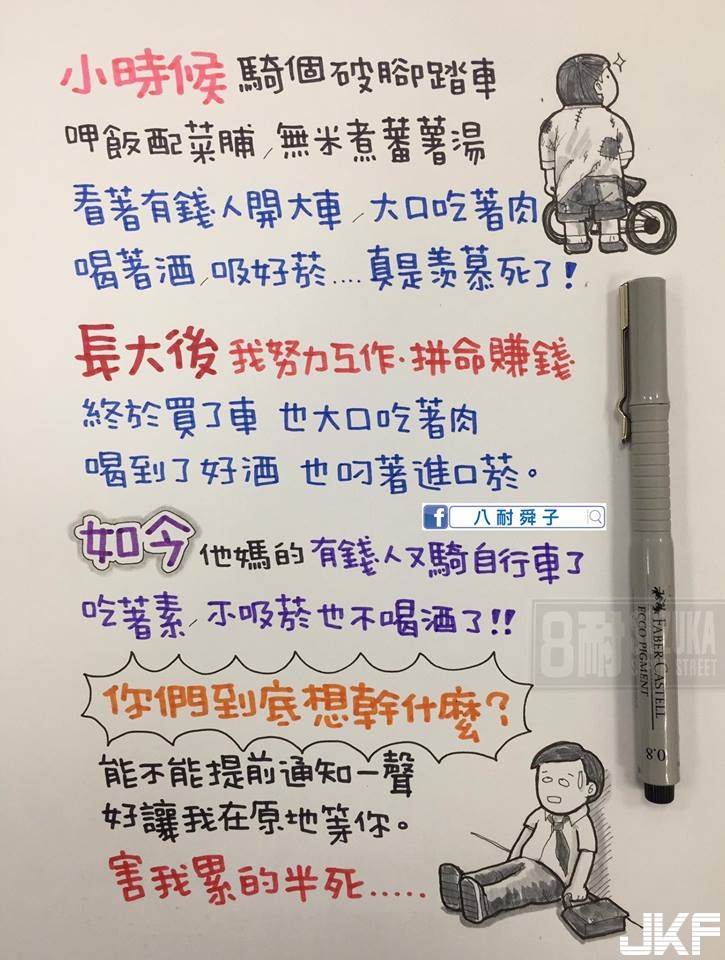 小時候 騎個破腳踏車
呷飯配菜脯，無米煮蕃薯湯
看著有錢人開大車，大口吃著肉
喝著酒，吸好菸....真是羨慕死了！
長大後 我努力工作．拼命賺錢
終於買了車 也大口吃著肉
喝到了好酒 也叼著進口菸。
f 八耐舜子
如今 他媽的 有錢人又騎自行車了
吃著素，不吸菸也不喝酒了!!
FABER-CASTELL
ECCO PIGMENT
0.8
你們到底想幹什麼？
能不能提前通知一聲
好讓我在原地等你。
害我累的半死.....
JKF